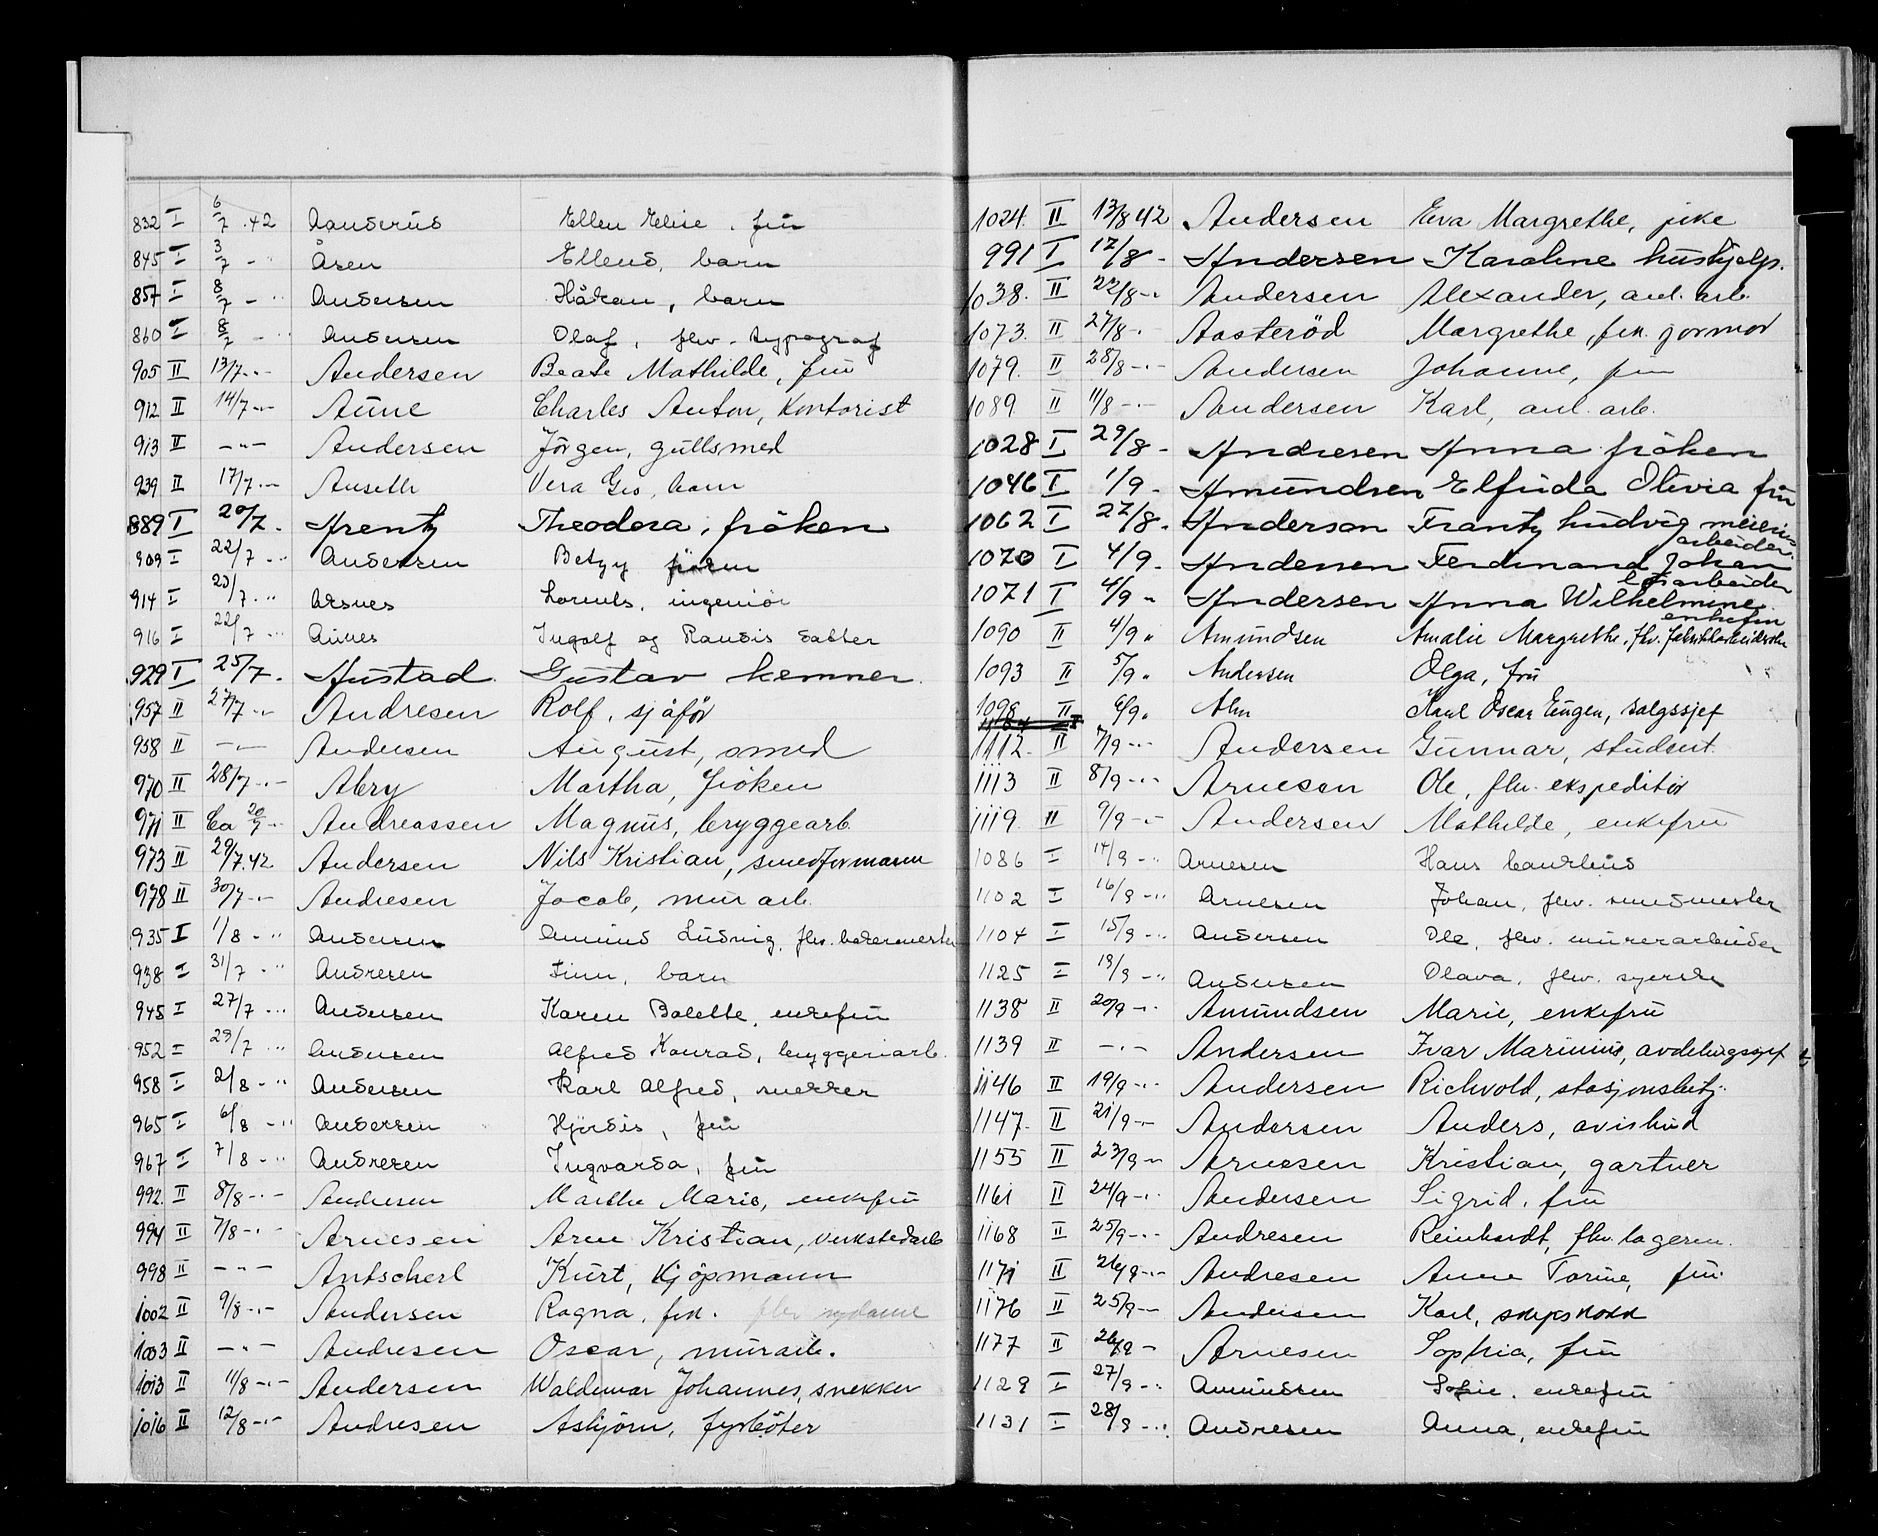 832 I 6/7 .42 Aanderud Ellen Elise, frü
845 I 3/7 - " Åsen Ellends, barn
857 I 8/7 - " Andersen Håkan, barn
860 I 8/7 - " Andersen Olaf, fhv. typograf
905 II 13/7 -"- Andersen Beate Mathilde, frü
912 II 14/7 -"- Aüne Charles Anton, Kontorist
913 II -"- Andersen Jörgen, güllsmed
939 II 17/7 -"- Anseth Vera Gro, barn
889 I 20/7 - Arentz Theodora, fröken
909 I 22/7 - " Andersen Betzy fröken
914 I 23/7 - " Arsnes ingeniör
916 I 22/7 - " Aünes Ingolf og Randis datter
929 I 25/7 - Austad Gustav kemner
957 II 27/7 -"- Andresen Rolf, sjåför
958 II -"- Andersen August, smed
970 II 28/7 -"- Abry Martha, fröken
971 II Ca 20/7 -"- Andreassen Magnüs, bryggearb.
973 II 29/7.42 Andersen Nils Kristian, smedformann
978 II 30/7 -"- Andresen Jacob, mürarb.
935 I 1/8 - " Andersen Amünd Lüdvig, fhv. bakermester
938 I 31/7 - " Andresen Finn, barn
945 I 27/7 - " Andersen Karen Bolette, enkefrü
952 I 29/7 - " Andersen Alfred Konrad, bryggeriarb.
958 I 2/8 - " Andersen Karl Alfred, snekker
965 I 6/8 - " Andersen Hjördis, frü
967 I 7/8 - " Andresen Ingvarda, frü
992. II 8/8 -"- Andresen Marthe Marie, enkefrü
994 II 7/8 -"- Arnesen Arne Kristian, verkstedarb
998 II -"- Antscherl Kürt, Kjöpmann
1002 II 9/8 -"- Andersen Ragna, frk. fhv sydame
1003 II -"- Andresen Oscar, mürarb.
1013 II 11/8 -"- Andersen Waldemar Johannes, snekker
1016 II 12/8 -"- Andresen Asbjörn, fyrböter
1024. II 13/8 42 Andersen Eva Margrethe, pike
991 I 12/8 - Andersen Karoline hüshjelp.
1038. II 22/8 -"- Andersen Alexander, anl. arb.
1073. II 27/8 -"- Aasteröd Margrethe, frk. jormor
1079. II 28/8 -"- Andersen Johanne, frü
1089 II 11/8 -"- Andersen Karl, anl. arb.
1028 I 29/8 - Andresen Anna fröken
1046 I 1/9 - Amündsen Elfrida Olivia frü
1062 I 27/8 - Anderson Frantz Lüdvig meieri-
arbeider.
1070 I 4/9 - Andersen Ferdinand Johan
lösarbeider
1071 I 4/9 " Andersen Anna Wilhelmine
enkefrü
1090 II 4/9 " Amündsen Amalie Margrethe, fhv. fabrikkarbeiderske
1093 II 5/9 " Andersen Olga, frü
1098 II 6/9 " Alm Karl Oscar Eügen, salgssjef
1112. II 7/9 -"- Andersen Günnar, stüdent
1113 II 8/9 -"- Arnesen Ole, fhv. ekspeditör
1119. II 9/9 -"- Andersen Mathilde, enkefrü
1086 I 14/9 - " Arnesen Hans
1102 I 16/9 - " Arnesen Johan, fhv.
1104 I 15/9 - " Andersen Ole, fhv. mürerarbeider
1125 I 19/9 - " Andersen Olava, fhv. syerske
1138 II 20/9 -"- Amündsen Marie, enkefrü
1139 II -"- Andersen Ivar Marinius, avdelingssjef
1146 II 19/9 -"- Andersen Richvold, stasjonsbetj.
1147. II 21/9 -"- Andersen Anders, avisbüd
1155 II 23/9 -"- Arnesen Kristian, gartner
1161 II 24/9 -"- Andersen Sigrid, frü
1168 II 25/9 -"- Andresen Reinhardt, fhv. lagerm.
1171 II 26/9 -"- Andresen Anne Torine, frü.
1176 II 25/9 -"- Andersen Karl, skipskokk
1177 II 26/9 - Arnesen Sophia, frü
1129 I 27/9 - " Amündsen Sofie, enkefrü
1131 I 28/9 - " Andresen Anna, enkefrü